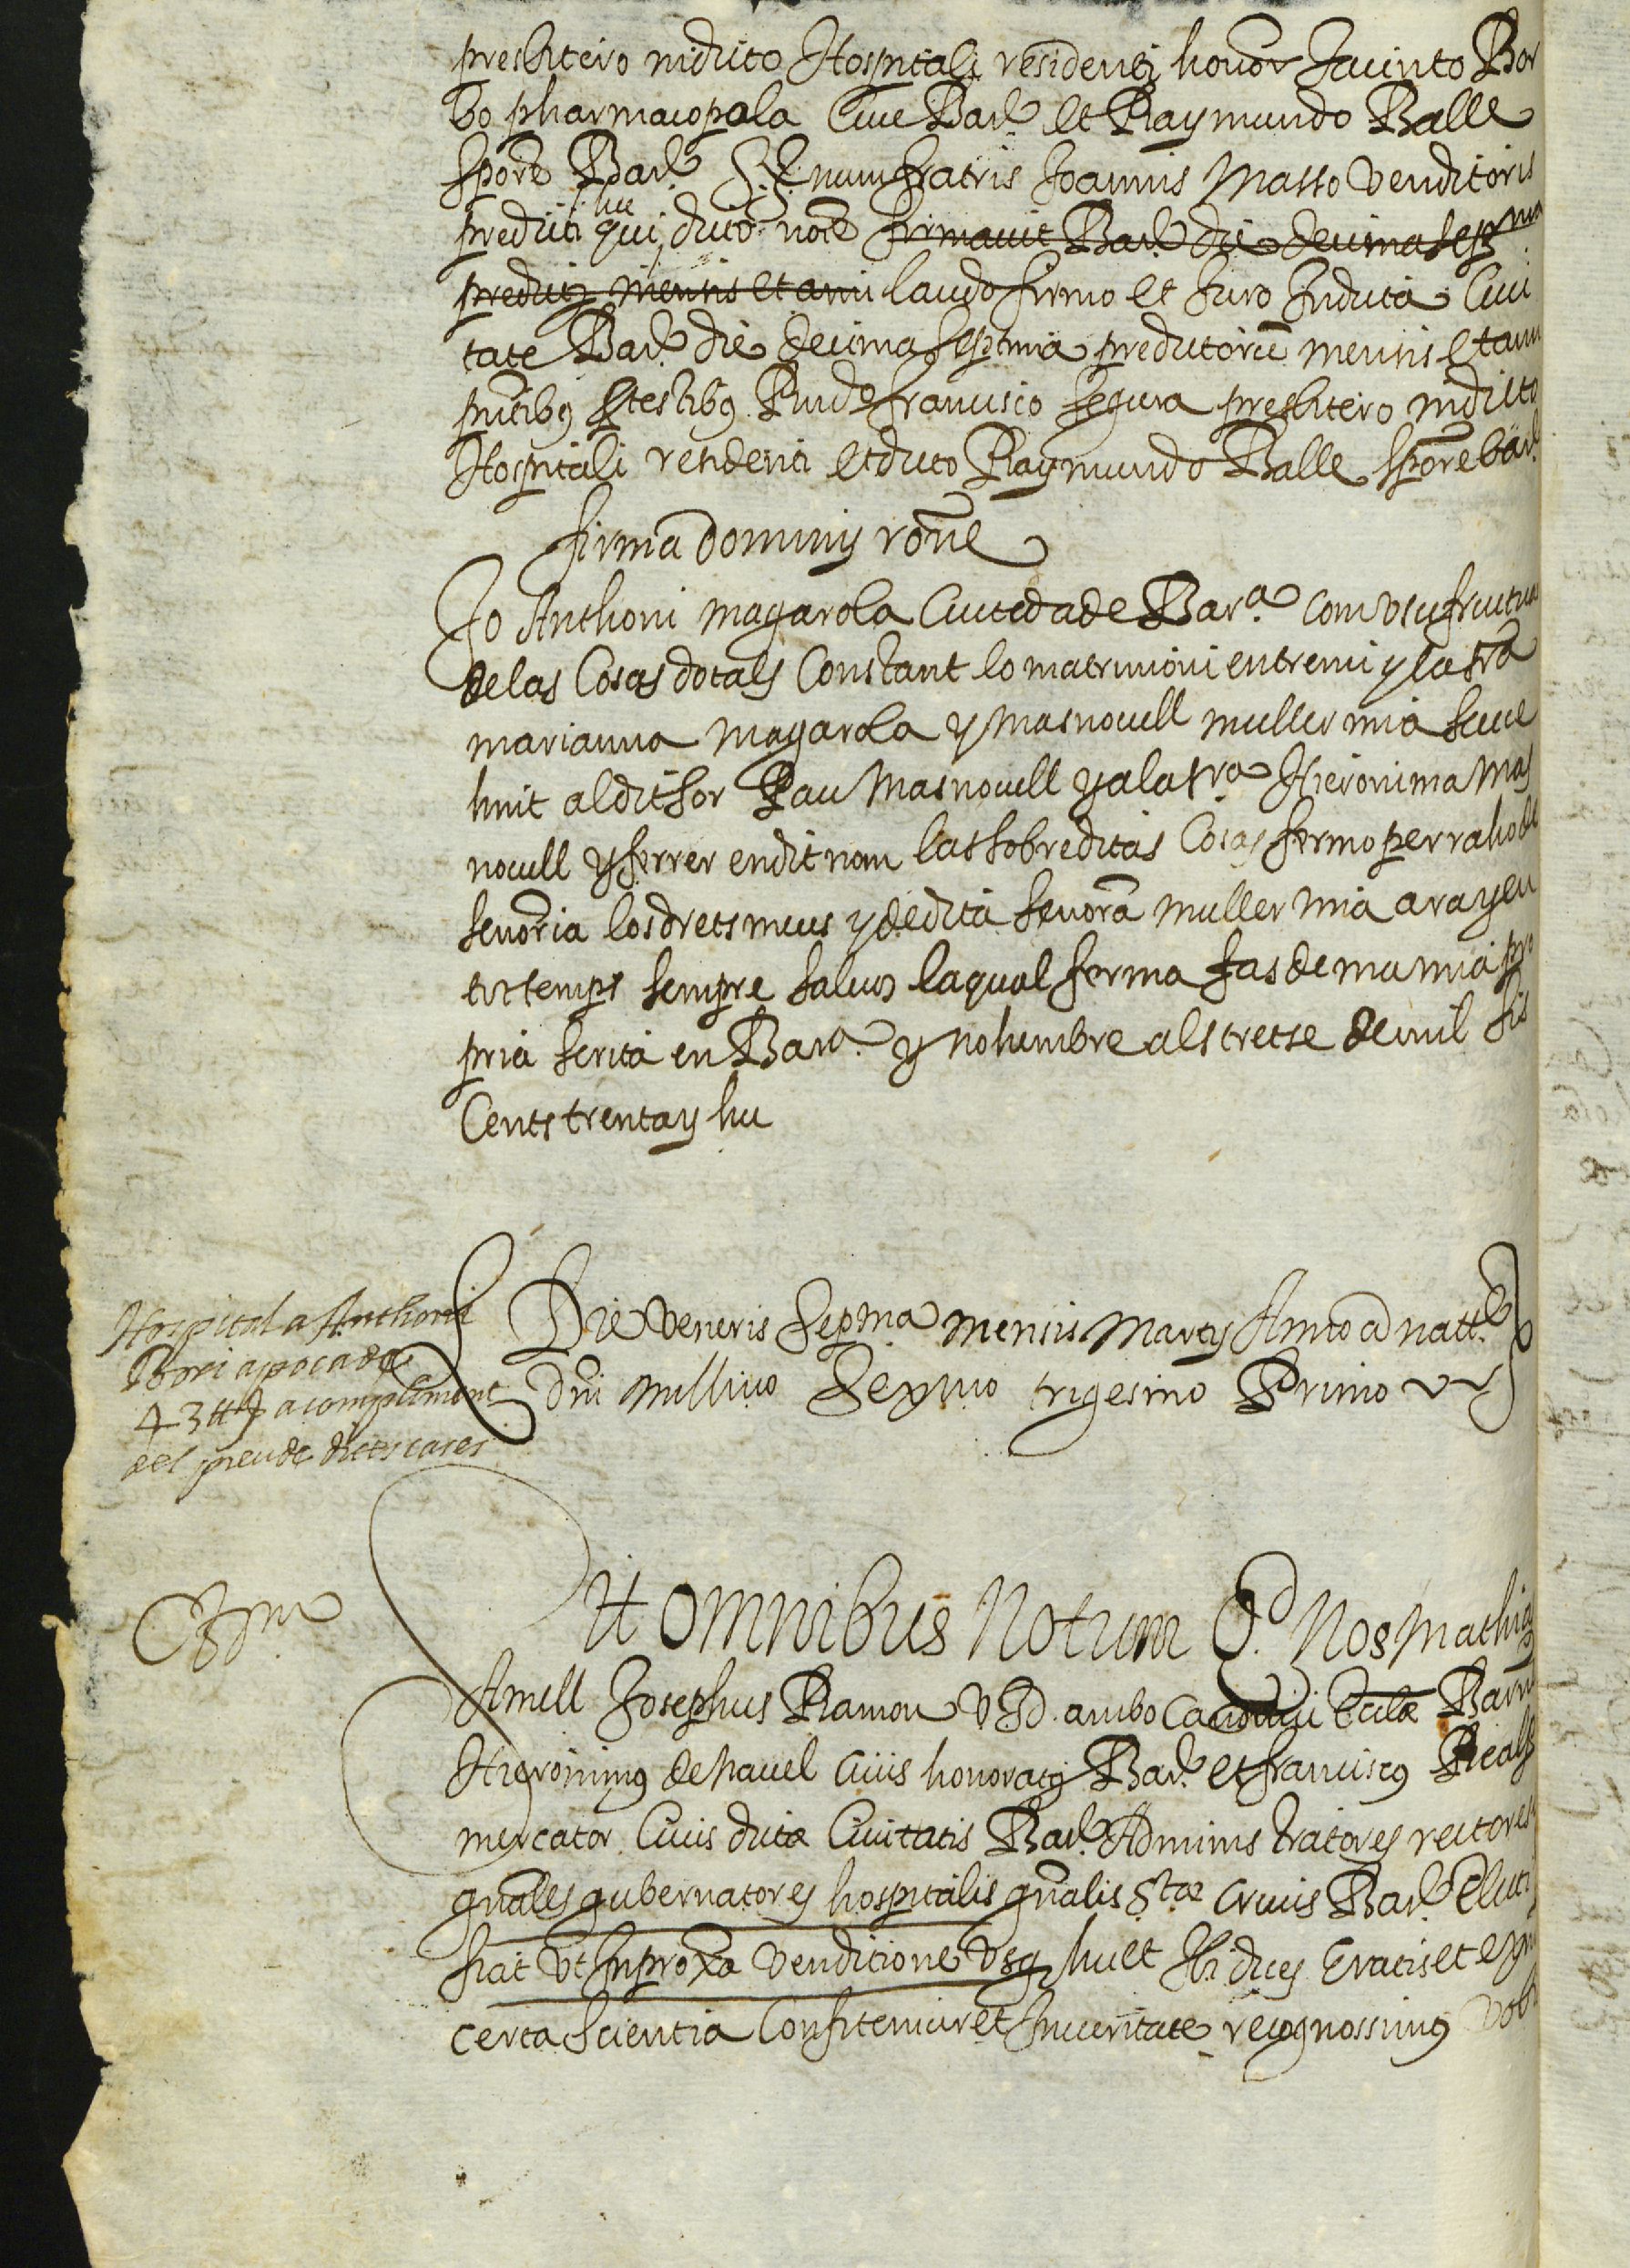 presbitero in dicto Hospitali residenti honor Jacinto Bor
bo pharmacopola Cive Bar. et Raymundo Balle
scpore Bar. S.num fratris Joannis Masso venditoris
predicti qui hec dicto noē firmavit Bar. die decima sepma
predicti mensis et anni laudo firmo et Juro In dicta Civi
tate Bar. die decima septima predictorū mensis et anni
pntibus testibus Rndo francisco segura presbitero in dicto
Hospitali residenti et dicto Raymundo Balle scpore bar.
firma dominii rōne
Jo Anthoni magarola Ciutedà de Bar.a com usufructua
de las Cosas dotals Constant lo matrimoni entre mi y la sra
marianna magarola y Masnovell muller mia sens
lluit al dit sor Pau Masnovell y a la sra Hieronima Mas
novell y ferrer en dit nom las sobreditas Cosas fermo per raho de
senoria los drets meus y de dita senora muller mia ara y en
tot temps sempre salvos la qual ferma fas de ma mia pro
pria scrita en Bara. y nohembre als tretse de mil sis
Cents trenta y hu
Hospital a Anthoni
apoca de
43 ll a compliment
del preu de dites cases
Die Veneris Sepma mensis Martii Anno a natte
Dni Millmo Sexmo trigesimo Primo
Sit omnibus Notum Qd. Nos Mathias
Amell Josephus Ramon VJD. ambo Canonici Eccle Barn
Hieronimus de Navel Civis honoratus Bar. et franciscus Reals
mercator Civis dicte Civitatis Bar. Administratores rectores
gnales gubernatores hospitalis gnalis Stae Crucis Bar.
fiat Ut In proxa Venditione Usq huc et Ibi dices Gratis et ex nra
certa scientia Confitemur et In veritate recognossimus vobis